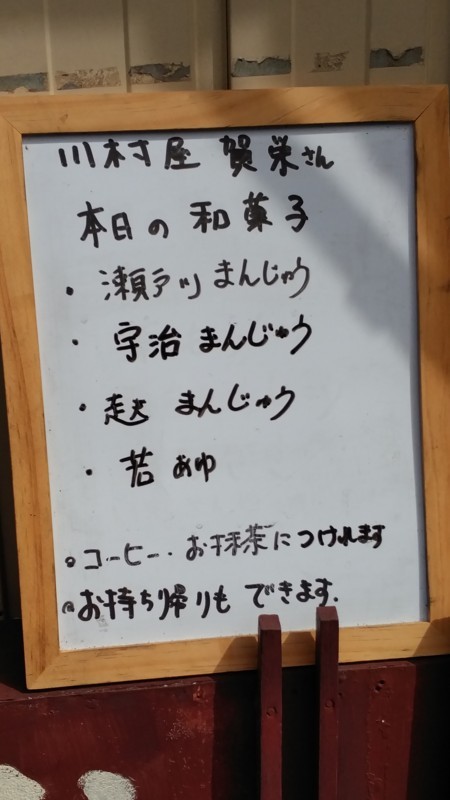 川村屋 賀栄さん
本日の 和菓子
・瀬戸川 まんじゅう
・宇治 まんじゅう
・まんじゅう
・若あゆ
○コーヒー・お抹茶につけれます
○お持ち帰りも できます.